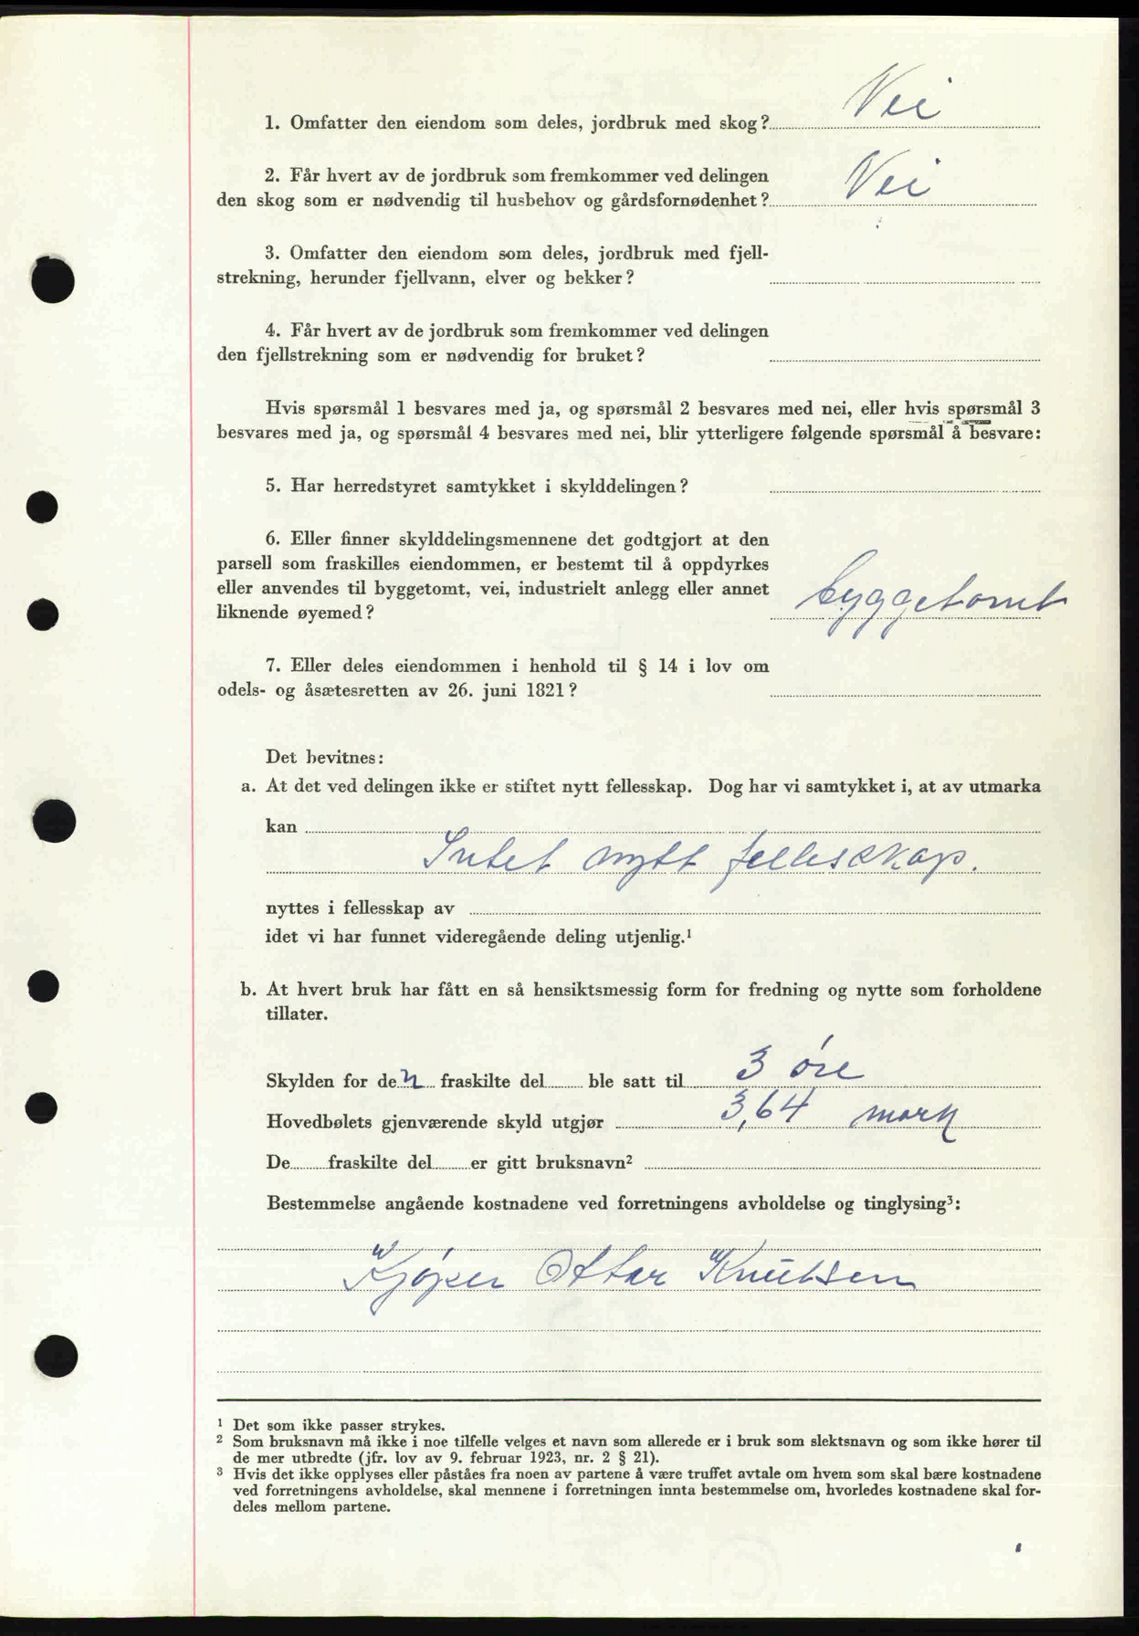 1. Omfatter den eiendom som deles, jordbruk med skog? Nei
2. Får hvert av de jordbruk som fremkommer ved delingen
den skog som er nødvendig til husbehov og gårdsfornødenhet? Nei
3. Omfatter den eiendom som deles, jordbruk med fjell-
strekning, herunder fjellvann, elver og bekker?
4. Får hvert av de jordbruk som fremkommer ved delingen
den fjellstrekning som er nødvendig for bruket?
Hvis spørsmål 1 besvares med ja, og spørsmål 2 besvares med nei, eller hvis spørsmål 3
besvares med ja, og spørsmål 4 besvares med nei, blir ytterligere følgende spørsmål å besvare:
5. Har herredstyret samtykket i skylddelingen?
6. Eller finner skylddelingsmennene det godtgjort at den
parsell som fraskilles eiendommen, er bestemt til å oppdyrkes
eller anvendes til byggetomt, vei, industrielt anlegg eller annet
liknende øyemed? byggetomt
7. Eller deles eiendommen i henhold til § 14 i lov om
odels- og åsætesretten av 26. juni 1821?
Det bevitnes:
a. At det ved delingen ikke er stiftet nytt fellesskap. Dog har vi samtykket i, at av utmarka
kan
Intet nytt fellesskap.
nyttes i fellesskap av
idet vi har funnet videregående deling utjenlig.¹
b. At hvert bruk har fått en så hensiktsmessig form for fredning og nytte som forholdene
tillater.
Skylden for den fraskilte del ble satt til 3 øre
Hovedbølets gjenværende skyld utgjør 3,64 mark
De fraskilte del er gitt bruksnavn²
Bestemmelse angående kostnadene ved forretningens avholdelse og tinglysing³:
Kjøper Ottar Knutsen
¹ Det som ikke passer strykes.
² Som bruksnavn må ikke i noe tilfelle velges et navn som allerede er i bruk som slektsnavn og som ikke hører til
de mer utbredte (jfr. lov av 9. februar 1923, nr. 2 § 21).
³ Hvis det ikke opplyses eller påståes fra noen av partene å være truffet avtale om hvem som skal bære kostnadene
ved forretningens avholdelse, skal mennene i forretningen innta bestemmelse om, hvorledes kostnadene skal for-
deles mellom partene.